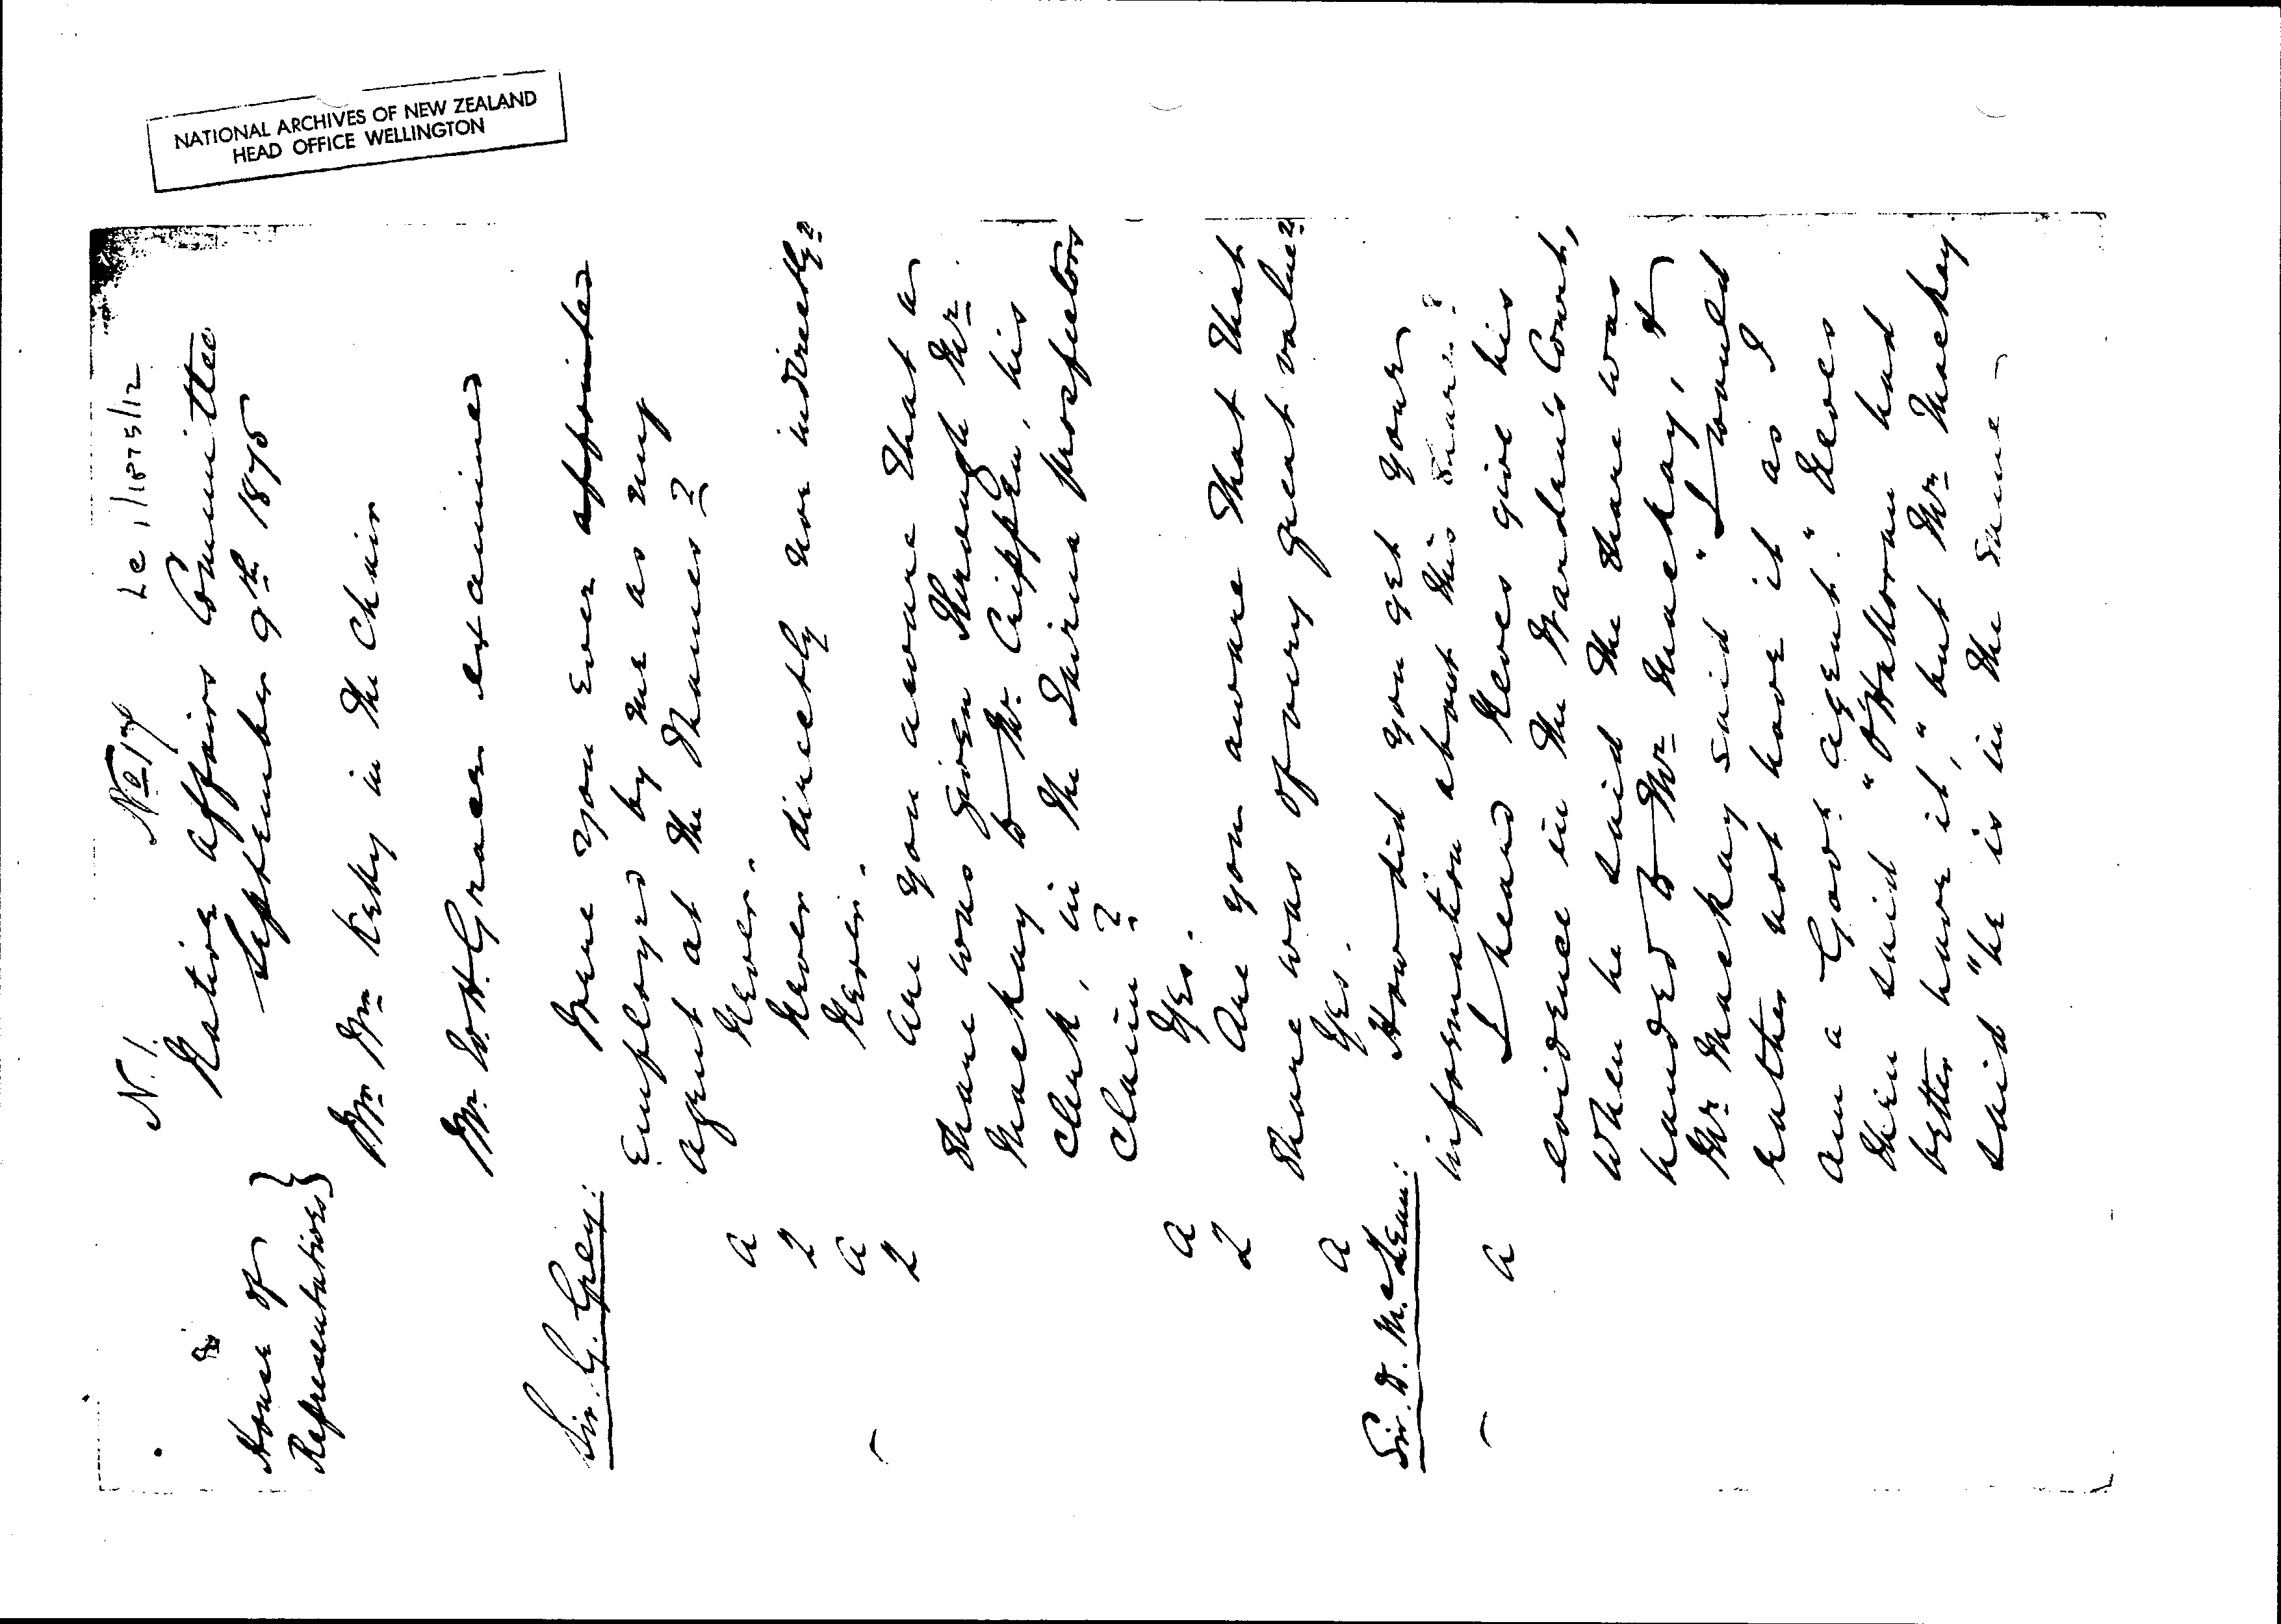 NATIONAL ARCHIVES OF NEW ZEALAND
HEAD OFFICE WELLINGTON
N.1. No 17 Le 1/1875/12
House of
Representatives
Native Affairs Committee
September 9th 1875
Mr Wm Kelly in the Chair
Mr. W.H. Grace examined
Sir. G. Grey: Were you ever appointed
Employed by me as my
agent at the Thames?
A Never.
Q Never directly nor indirectly?
A Never.
Q Are you aware that a
share was given through Mr.
Mackay to Mr. Crippen, his
Clerk, in the prospectors
Claim?
A Yes.
Q Are you aware that that
share was of very great value?
A Yes.
Sir. D. McLean: How did you get your
information about this share?
A I heard give his
evidence in the Warden's Court,
when he said the share was
handed to Mr Mackay, &
Mr Mackay said "I would
rather not have it as I
am a Govt agent."
then said "O'Halloran had
better have it," but Mr Mackay
said "he is in the same -